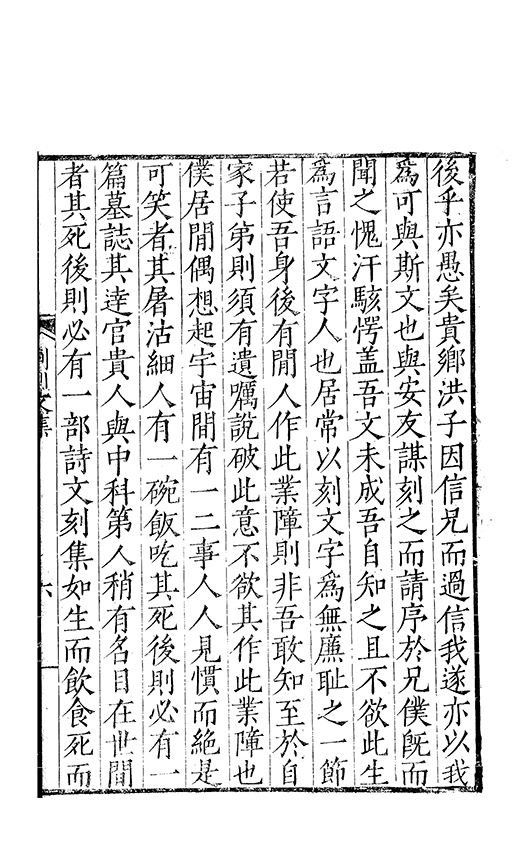 後乎亦愚矣貴鄉洪子因信兄而過信我遂亦以我
爲可與斯文也與安友謀刻之而請序於兄僕旣而
聞之愧汗駭愕盖吾文未成吾自知之且不欲此生
爲言語文字人也居常以刻文字爲無廉耻之一節
若使吾身後有閒人作此業障則非吾敢知至於自
家子弟則須有遺囑說破此意不欲其作此業障也
僕居閒偶想起宇宙間有一二事人人見慣而絶是
可笑者其屠沽細人有一碗飯吃其死後則必有一
篇墓誌其達官貴人與中科第人稍有名目在世間
者其死後則必有一部詩文刻集如生而飲食死而
荆川文集
六